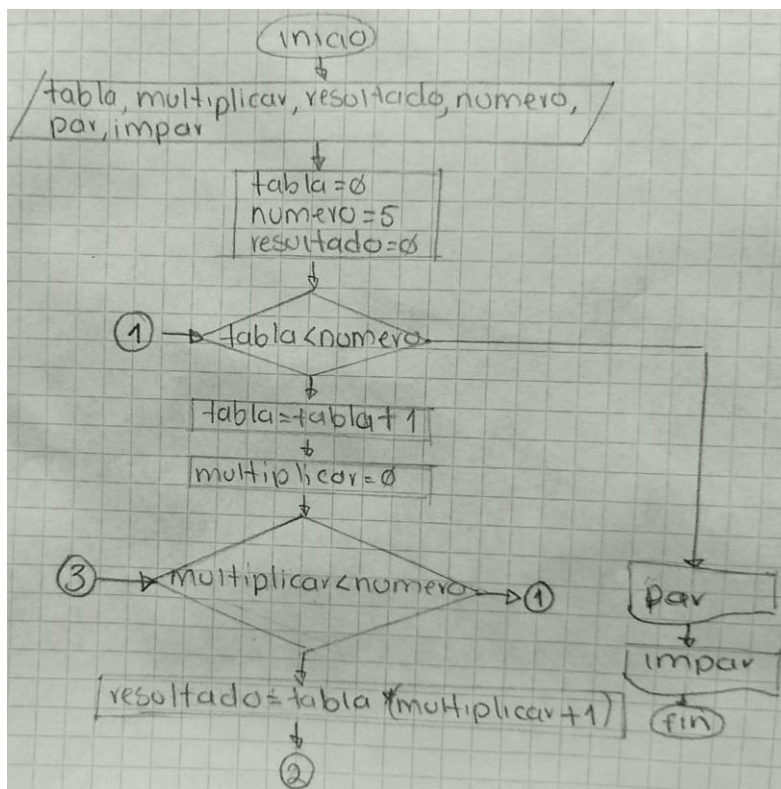 inicio
tabla, multiplicar, resultado, numero,
par, impar
tabla=0
numero=5
resultado=0
1
tabla<numero
tabla=tabla+1
multiplicar=0
3
multiplicar<numero
1
par
impar
resultado=tabla*(multiplicar+1)
fin
2